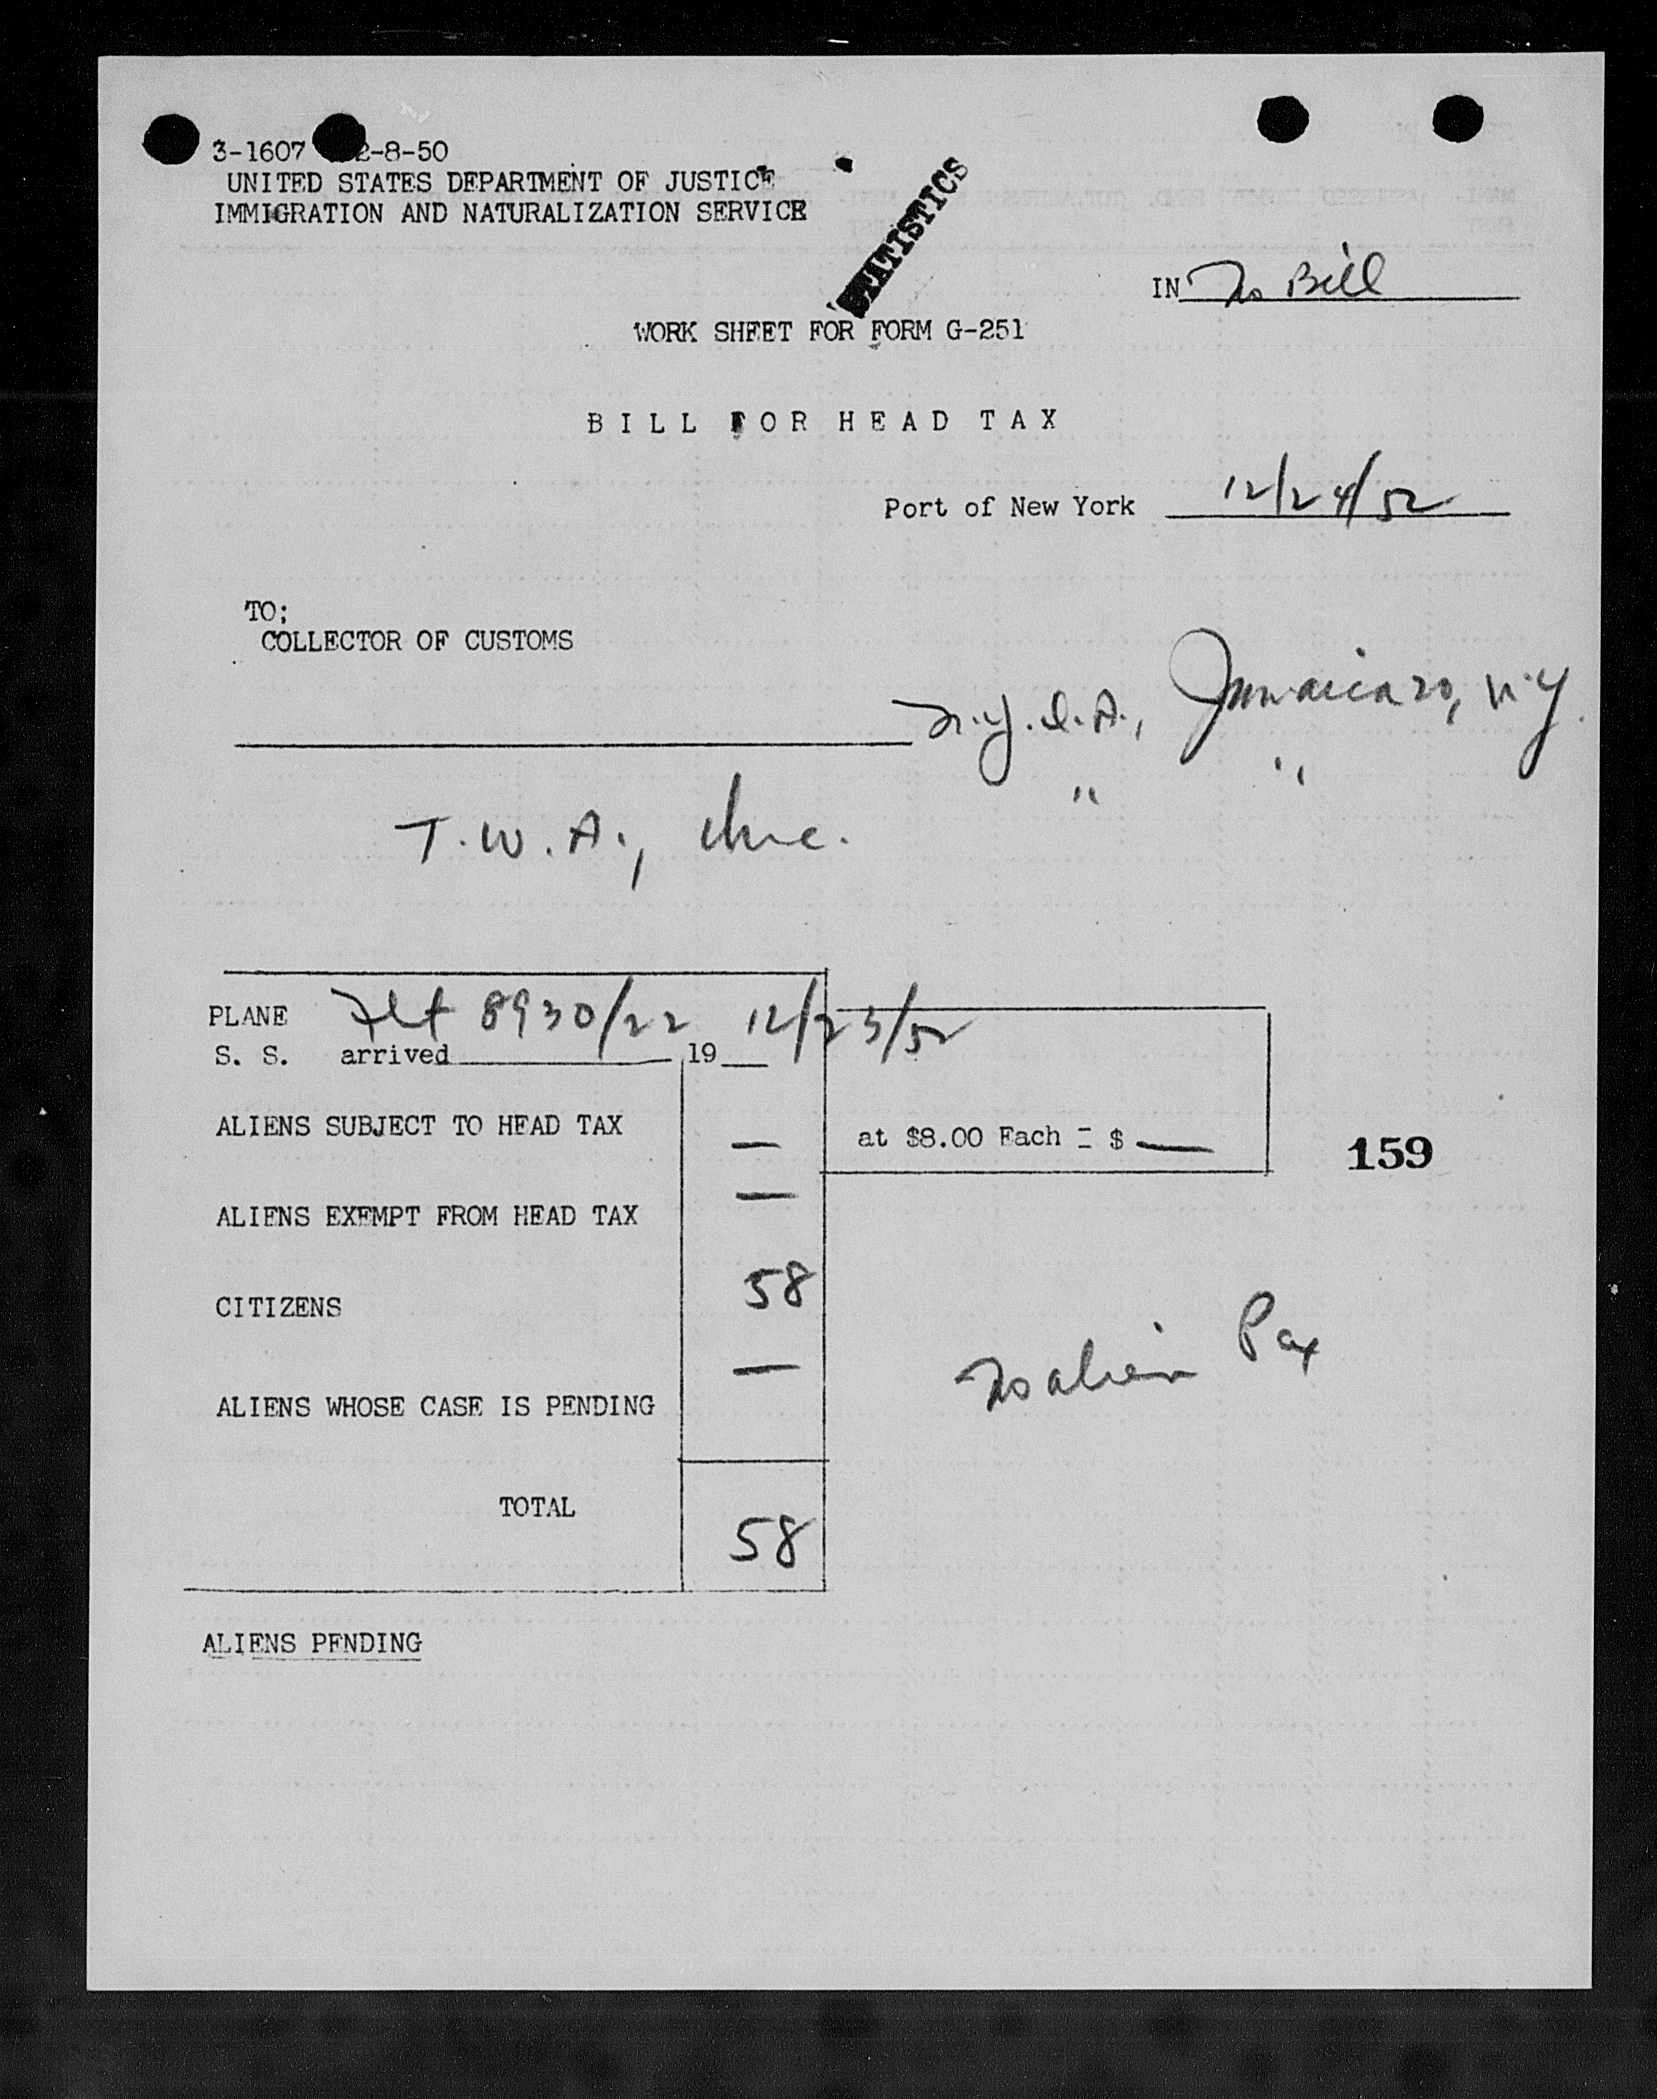 3-1607 2-8-50
UNITED STATES DEPARTMENT OF JUSTICE
IMMIGRATION AND NATURALIZATION SERVICE
STATISTICS
IN No Bill
WORK SHEET FOR FORM G-251
BILL FOR HEAD TAX
Port of New York 12/24/52
TO;
COLLECTOR OF CUSTOMS
N.Y.I.A., Jamaica 20, N.Y.
" "
T.W.A., Inc.
PLANE Flt 8930/22 12/23/52
S. S. arrived 19
ALIENS SUBJECT TO HEAD TAX — at $8.00 Each = $ —
159
ALIENS EXEMPT FROM HEAD TAX —
CITIZENS 58
No alien Pax
ALIENS WHOSE CASE IS PENDING —
TOTAL 58
ALIENS PENDING